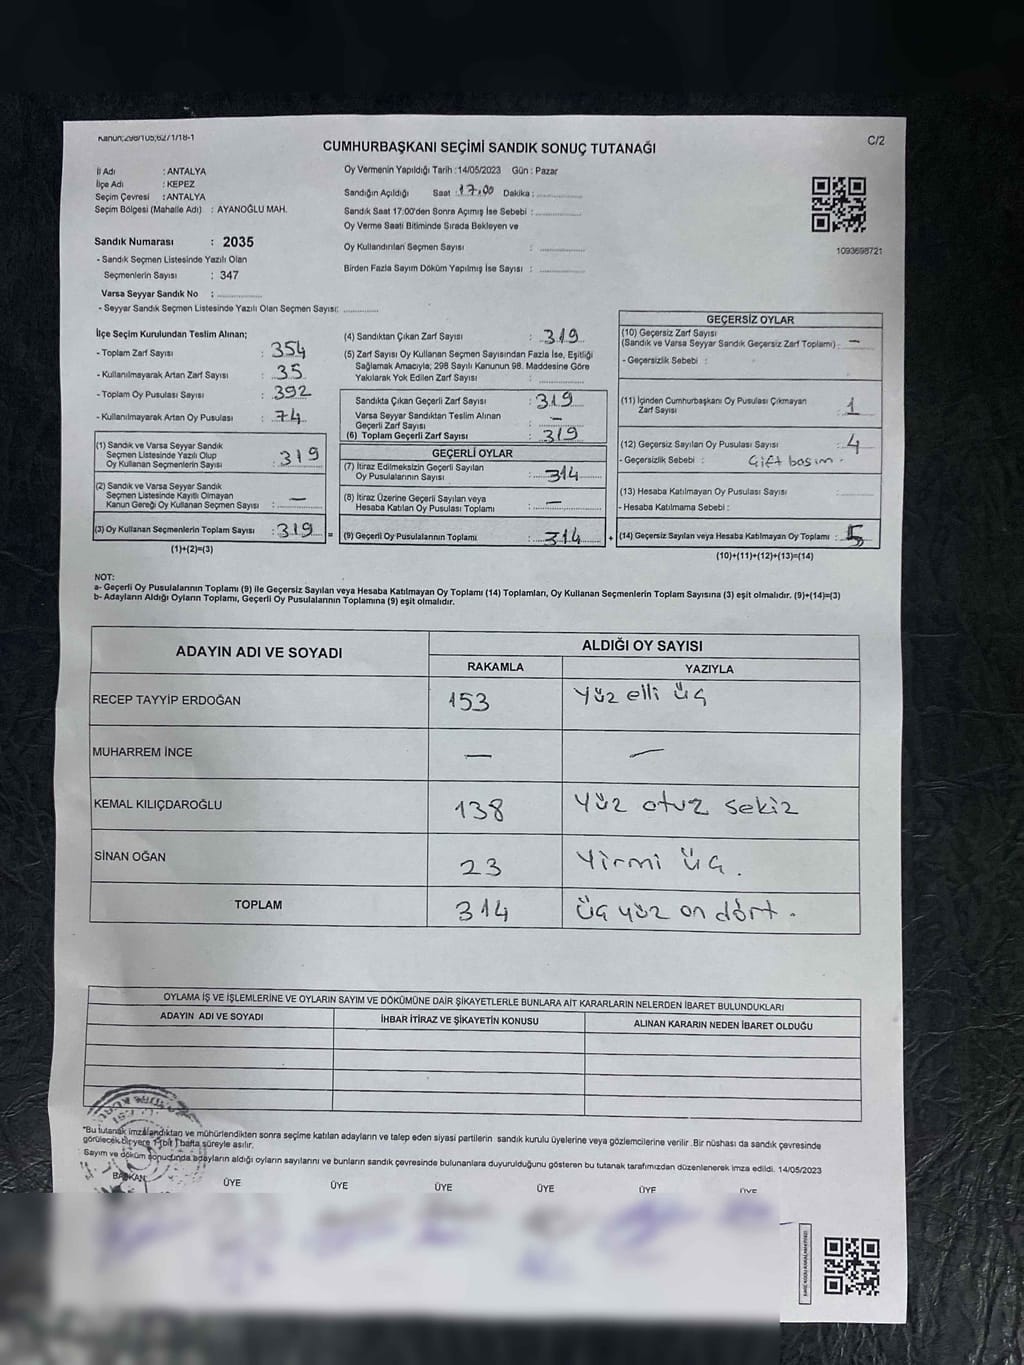 Kanun:298/105,6271/18-1
C/2
CUMHURBAŞKANI SEÇİMİ SANDIK SONUÇ TUTANAĞI
İl Adı : ANTALYA
İlçe Adı : KEPEZ
Seçim Çevresi : ANTALYA
Seçim Bölgesi (Mahalle Adı) : AYANOĞLU MAH.
Sandık Numarası : 2035
- Sandık Seçmen Listesinde Yazılı Olan
Seçmenlerin Sayısı : 347
Varsa Seyyar Sandık No :
- Seyyar Sandık Seçmen Listesinde Yazılı Olan Seçmen Sayısı:
Oy Vermenin Yapıldığı Tarih :14/05/2023 Gün : Pazar
Sandığın Açıldığı Saat :17.00 Dakika :
Sandık Saat 17:00'den Sonra Açımış İse Sebebi :
Oy Verme Saati Bitiminde Sırada Bekleyen ve
Oy Kullandırılan Seçmen Sayısı :
Birden Fazla Sayım Döküm Yapılmış İse Sayısı :
1093698721
İlçe Seçim Kurulundan Teslim Alınan;
- Toplam Zarf Sayısı : 354
- Kullanılmayarak Artan Zarf Sayısı : 35
- Toplam Oy Pusulası Sayısı : 392
- Kullanılmayarak Artan Oy Pusulası : 74
(1) Sandık ve Varsa Seyyar Sandık
Seçmen Listesinde Yazılı Olup
Oy Kullanan Seçmenlerin Sayısı : 319
(2) Sandık ve Varsa Seyyar Sandık
Seçmen Listesinde Kayıtlı Olmayan
Kanun Gereği Oy Kullanan Seçmen Sayısı : —
(3) Oy Kullanan Seçmenlerin Toplam Sayısı : 319 =
(1)+(2)=(3)
(4) Sandıktan Çıkan Zarf Sayısı : 319
(5) Zarf Sayısı Oy Kullanan Seçmen Sayısından Fazla İse, Eşitliği
Sağlamak Amacıyla; 298 Sayılı Kanunun 98. Maddesine Göre
Yakılarak Yok Edilen Zarf Sayısı :
Sandıkta Çıkan Geçerli Zarf Sayısı : 319
Varsa Seyyar Sandıktan Teslim Alınan
Geçerli Zarf Sayısı : —
(6) Toplam Geçerli Zarf Sayısı : 319
GEÇERLİ OYLAR
(7) İtiraz Edilmeksizin Geçerli Sayılan
Oy Pusulalarının Sayısı : 314
(8) İtiraz Üzerine Geçerli Sayılan veya
Hesaba Katılan Oy Pusulası Toplamı : —
(9) Geçerli Oy Pusulalarının Toplamı : 314 +
GEÇERSİZ OYLAR
(10) Geçersiz Zarf Sayısı
(Sandık ve Varsa Seyyar Sandık Geçersiz Zarf Toplamı) : —
- Geçersizlik Sebebi :
(11) İçinden Cumhurbaşkanı Oy Pusulası Çıkmayan
Zarf Sayısı : 1
(12) Geçersiz Sayılan Oy Pusulası Sayısı : 4
- Geçersizlik Sebebi : Çift basım.
(13) Hesaba Katılmayan Oy Pusulası Sayısı :
- Hesaba Katılmama Sebebi :
(14) Geçersiz Sayılan veya Hesaba Katılmayan Oy Toplamı : 5
(10)+(11)+(12)+(13)=(14)
NOT:
a- Geçerli Oy Pusulalarının Toplamı (9) ile Geçersiz Sayılan veya Hesaba Katılmayan Oy Toplamı (14) Toplamları, Oy Kullanan Seçmenlerin Toplam Sayısına (3) eşit olmalıdır. (9)+(14)=(3)
b- Adayların Aldığı Oyların Toplamı, Geçerli Oy Pusulalarının Toplamına (9) eşit olmalıdır.
ADAYIN ADI VE SOYADI ALDIĞI OY SAYISI
RAKAMLA YAZIYLA
RECEP TAYYİP ERDOĞAN 153 Yüz elli üç
MUHARREM İNCE — —
KEMAL KILIÇDAROĞLU 138 Yüz otuz sekiz
SİNAN OĞAN 23 Yirmi üç.
TOPLAM 314 Üç yüz on dört.
OYLAMA İŞ VE İŞLEMLERİNE VE OYLARIN SAYIM VE DÖKÜMÜNE DAİR ŞİKAYETLERLE BUNLARA AİT KARARLARIN NELERDEN İBARET BULUNDUKLARI
ADAYIN ADI VE SOYADI İHBAR İTİRAZ VE ŞİKAYETİN KONUSU ALINAN KARARIN NEDEN İBARET OLDUĞU
"Bu tutanak imzalandıktan ve mühürlendikten sonra seçime katılan adayların ve talep eden siyasi partilerin sandık kurulu üyelerine veya gözlemcilerine verilir .Bir nüshası da sandık çevresinde
görülecek bir yere 1 (bir) hafta süreyle asılır.
Sayım ve döküm sonucunda adayların aldığı oyların sayılarını ve bunların sandık çevresinde bulunanlara duyurulduğunu gösteren bu tutanak tarafımızdan düzenlenerek imza edildi. 14/05/2023
BAŞKAN ÜYE ÜYE ÜYE ÜYE ÜYE ÜYE